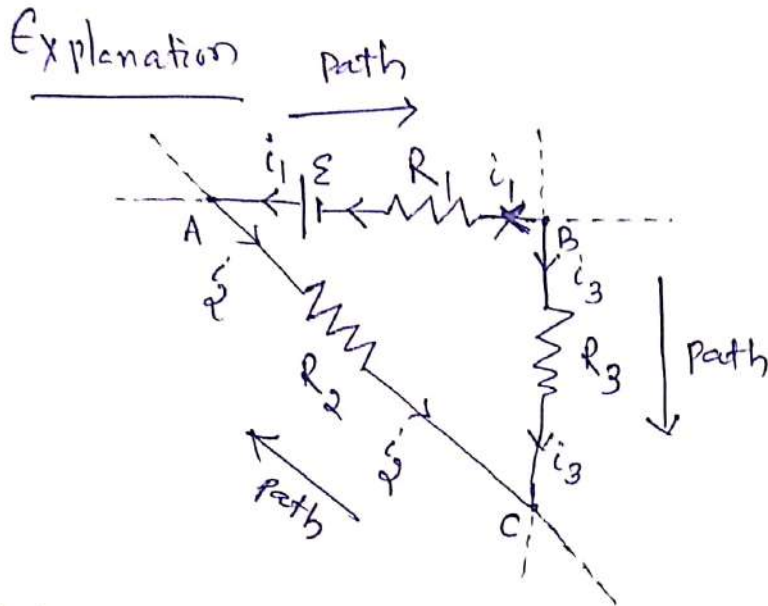 Explanation
Path
i₁ ε R₁ i₁
A B
i₂ i₃
R₂ R₃ Path
i₂ i₃
Path
C